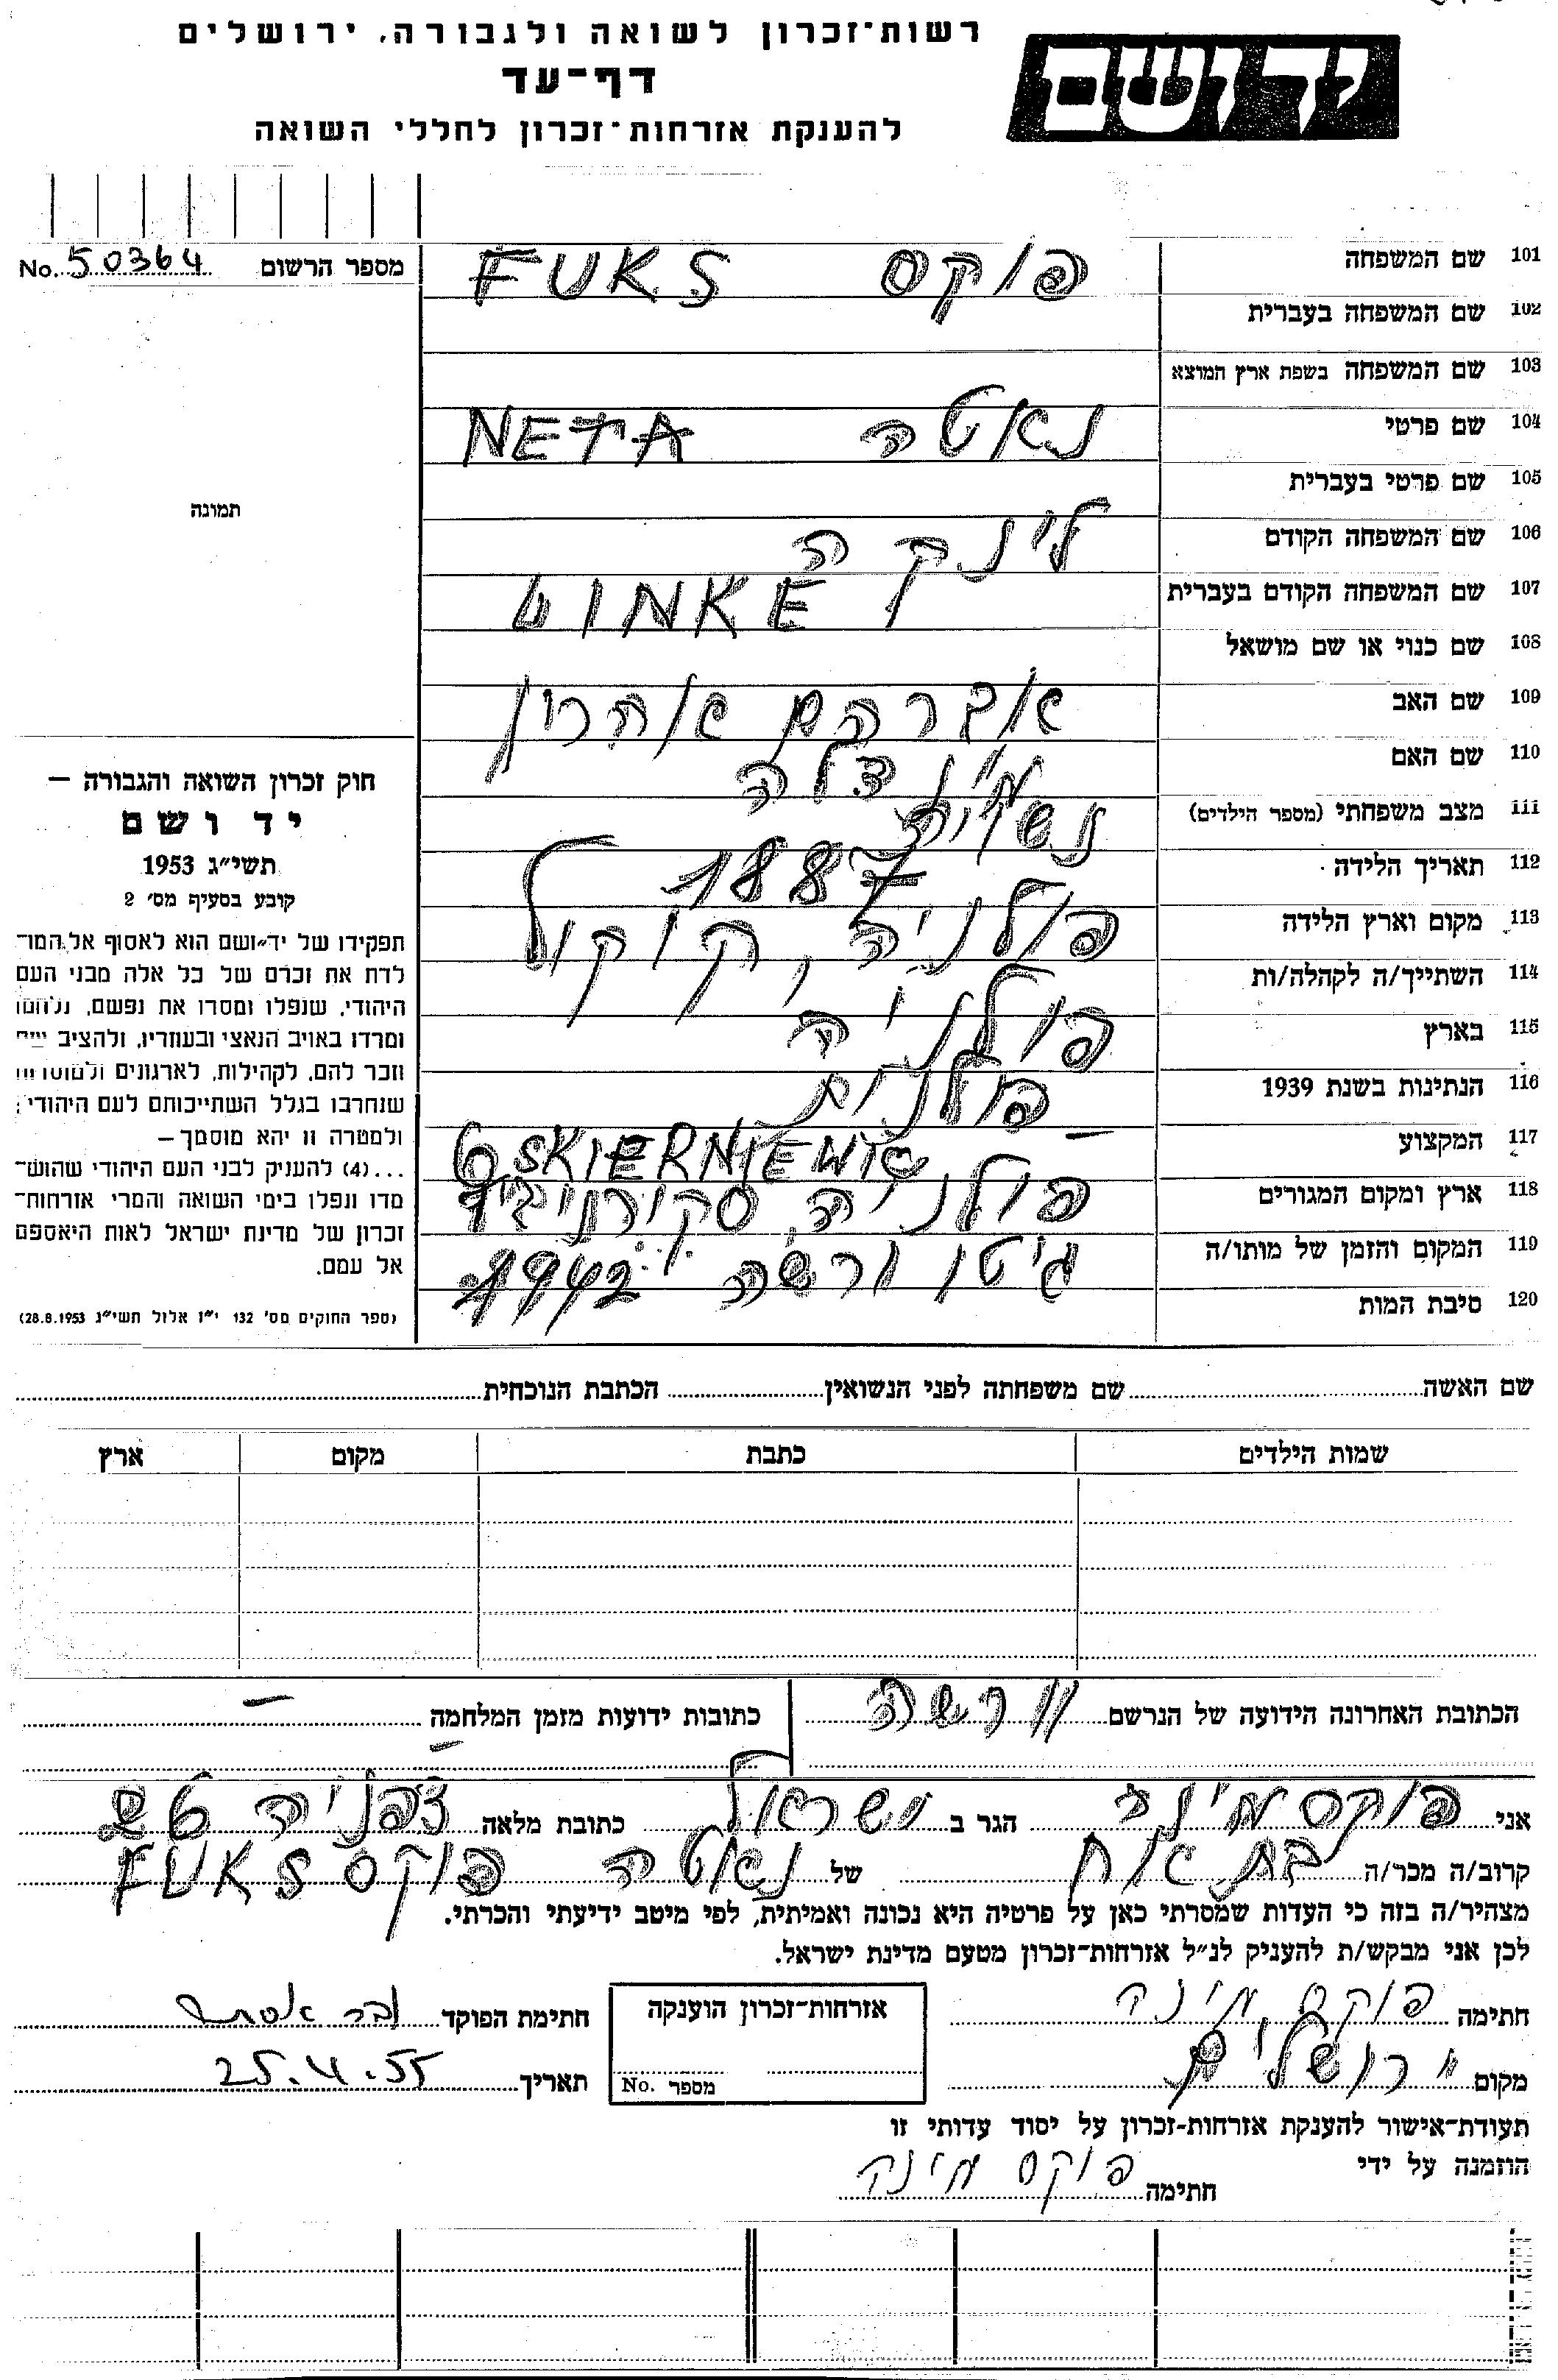 יד ושם
רשות־זכרון לשואה ולגבורה, ירושלים
דף־עד
להענקת אזרחות־זכרון לחללי השואה
מספר הרשום No. 50364
101 שם המשפחה פוקס FUKS
102 שם המשפחה בעברית
103 שם המשפחה בשפת ארץ המוצא
104 שם פרטי נאטה NETA
105 שם פרטי בעברית
106 שם המשפחה הקודם לינקה
107 שם המשפחה הקודם בעברית LINKE
108 שם כנוי או שם מושאל
109 שם האב אברהם אהרון
110 שם האם מינדלה
111 מצב משפחתי (מספר הילדים) נשוי
112 תאריך הלידה 1887
113 מקום וארץ הלידה פולניה, קוקול
114 השתייך/ה לקהלה/ות
115 בארץ פולניה
116 הנתינות בשנת 1939 פולנית
117 המקצוע –
SKIERNIEWIC
118 ארץ ומקום המגורים פולניה סקירניביץ
119 המקום והזמן של מותו/ה גיטו ורשה 1942
120 סיבת המות
תמונה
חוק זכרון השואה והגבורה —
יד ושם
תשי״ג 1953
קובע בסעיף מס׳ 2
תפקידו של יד־ושם הוא לאסוף אל המו־
לדת את זכרם של כל אלה מבני העם
היהודי, שנפלו ומסרו את נפשם, נלחמו
ומרדו באויב הנאצי ובעוזריו, ולהציב שם
וזכר להם, לקהילות, לארגונים ולמוסדות
שנחרבו בגלל השתייכותם לעם היהודי;
ולמטרה זו יהא מוסמך—
...(4) להעניק לבני העם היהודי שהוש־
מדו ונפלו בימי השואה והמרי אזרחות־
זכרון של מדינת ישראל לאות היאספם
אל עמם.
(ספר החוקים מס׳ 132 י״ז אלול תשי״ג 28.8.1953)
שם האשה שם משפחתה לפני הנשואין הכתבת הנוכחית
שמות הילדים כתבת מקום ארץ
הכתובת האחרונה הידועה של הנרשם וורשה כתובות ידועות מזמן המלחמה –
אני פוקס מינה הגר ב ישראל כתובת מלאה צפניה 26
קרוב/ה מכר/ה בת אח של נאטה פוקס FUKS
מצהיר/ה בזה כי העדות שמסרתי כאן על פרטיה היא נכונה ואמיתית, לפי מיטב ידיעתי והכרתי.
לכן אני מבקש/ת להעניק לנ״ל אזרחות־זכרון מטעם מדינת ישראל.
חתימה פוקס מינה אזרחות־זכרון הוענקה חתימת הפוקד
מקום ירושלים מספר No. תאריך 25.4.55
תעודת־אישור להענקת אזרחות-זכרון על יסוד עדותי זו
הוזמנה על ידי
חתימה פוקס מינה